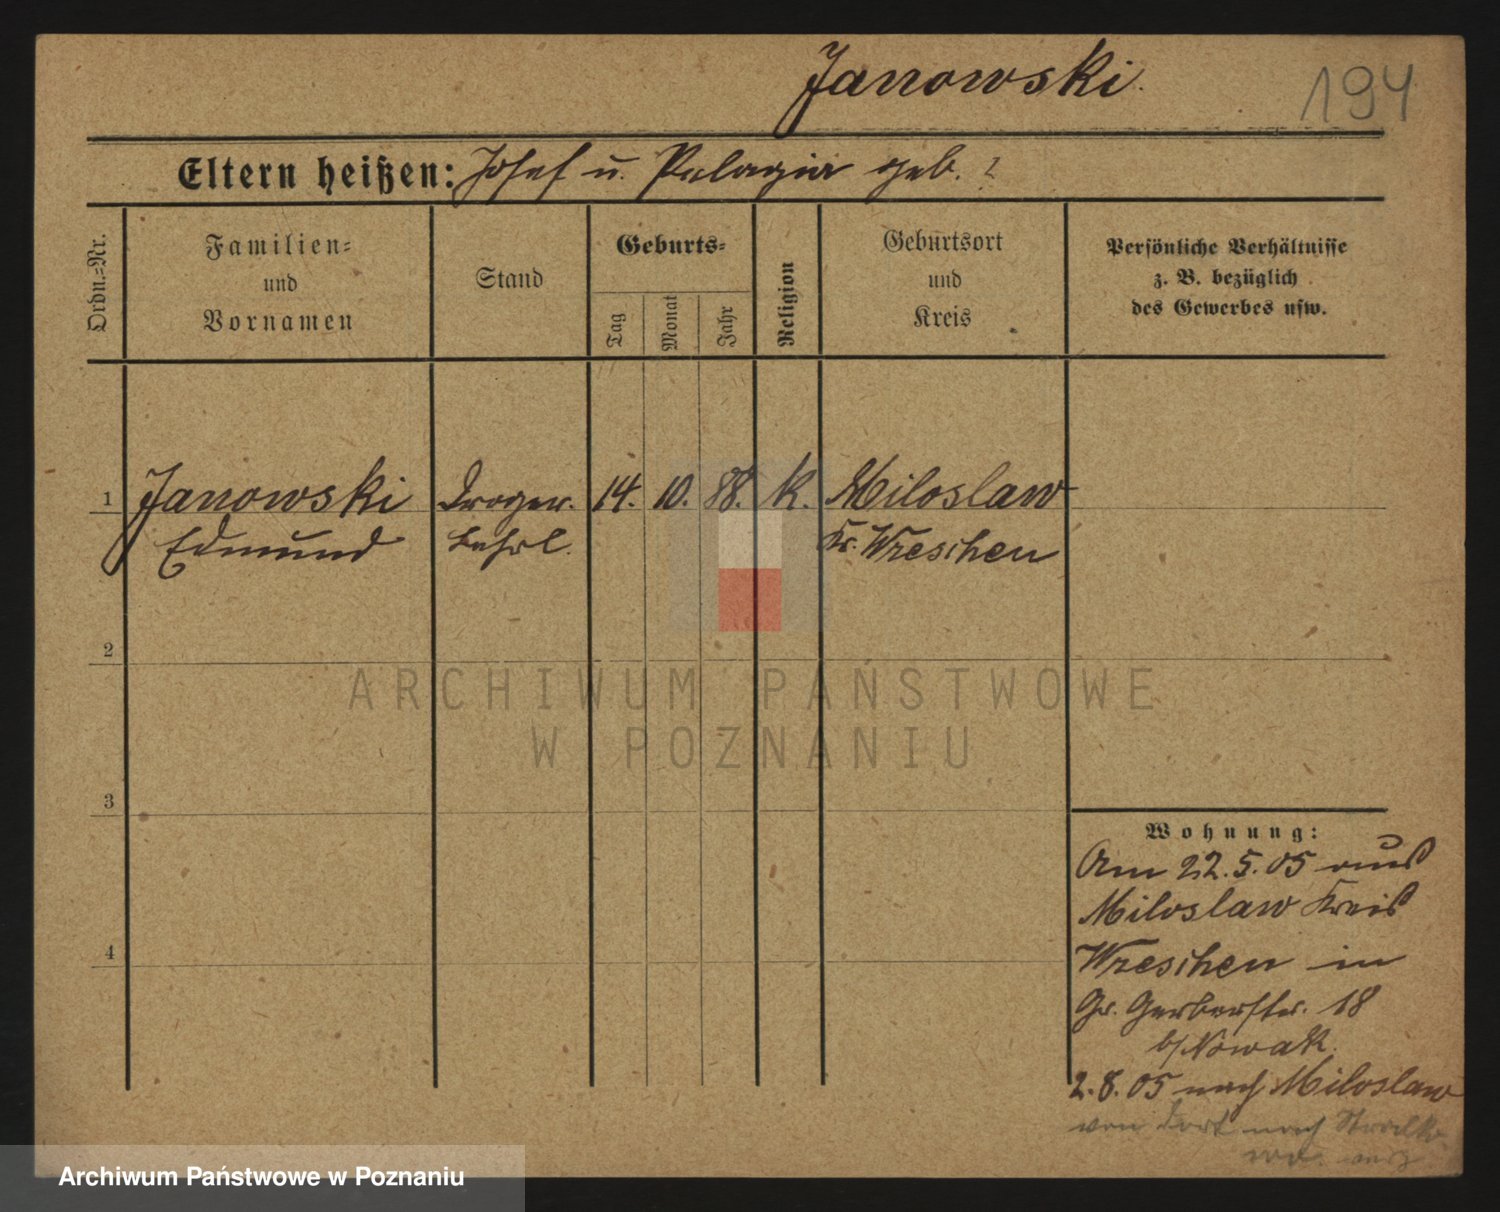 Janowski.
194
Eltern heißen: Josef u. Pelagia geb. ?
Ordn.=Nr.
Familien=
und
Vornamen
Stand
Geburts=
Tag
Monat
Jahr
Religion
Geburtsort
und
Kreis
Persönliche Verhältnisse
z. B. bezüglich
des Gewerbes usw.
1 Janowski Droger. 14. 10. 88. K. Miloslaw
Edmund Lehrl. Kr. Wreschen
2
ARCHIWUM PAŃSTWOWE
W POZNANIU
3
Wohnung:
Am 22.5.05 aus
Miloslaw Kreis
4
Wreschen in
Gr. Gerberstr. 18
b/Nowak.
2.8.05 nach Miloslaw
von dort nach
Archiwum Państwowe w Poznaniu